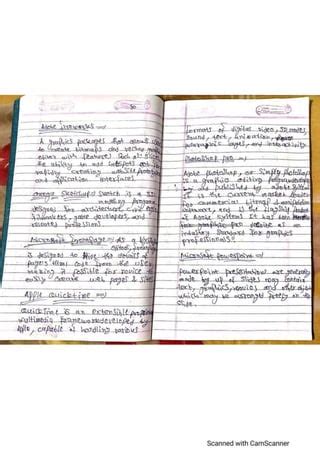 50
Adobe fireworks
A graphics packages that allows users
to create bitmaps and vectors
editor with features such as slices
the ability to add hotspots etc. to
rapidly creating website
and application interfaces
Google Sketchup
modeling program
designed for architecture civil
filmmakers, game developers, and
related professions
Microsoft Frontpage
is designed to hide the details of
pages HTML code from the user
making it possible for novice to
easily create web pages & sites
Apple Quicktime
Quicktime is an extensible
multimedia framework developed by
Apple, capable of handling various
formats of digital video, 3D models,
sound, text, animation,
panoramic images, and interactivity
Photoshop pro
Adobe photoshop, or simply photoshop
is a graphics editing programme
published by Adobe
It is the current market leader
for commercial bitmap & image
and is the flagship
of Adobe systems It has been
as an
industry standard for graphics
professionals
Microsoft Powerpoint
Powerpoint presentation are generally
made by up of slides may contain
text, graphics, movies and other object
which may be arranged freely on the
slide.
Scanned with CamScanner